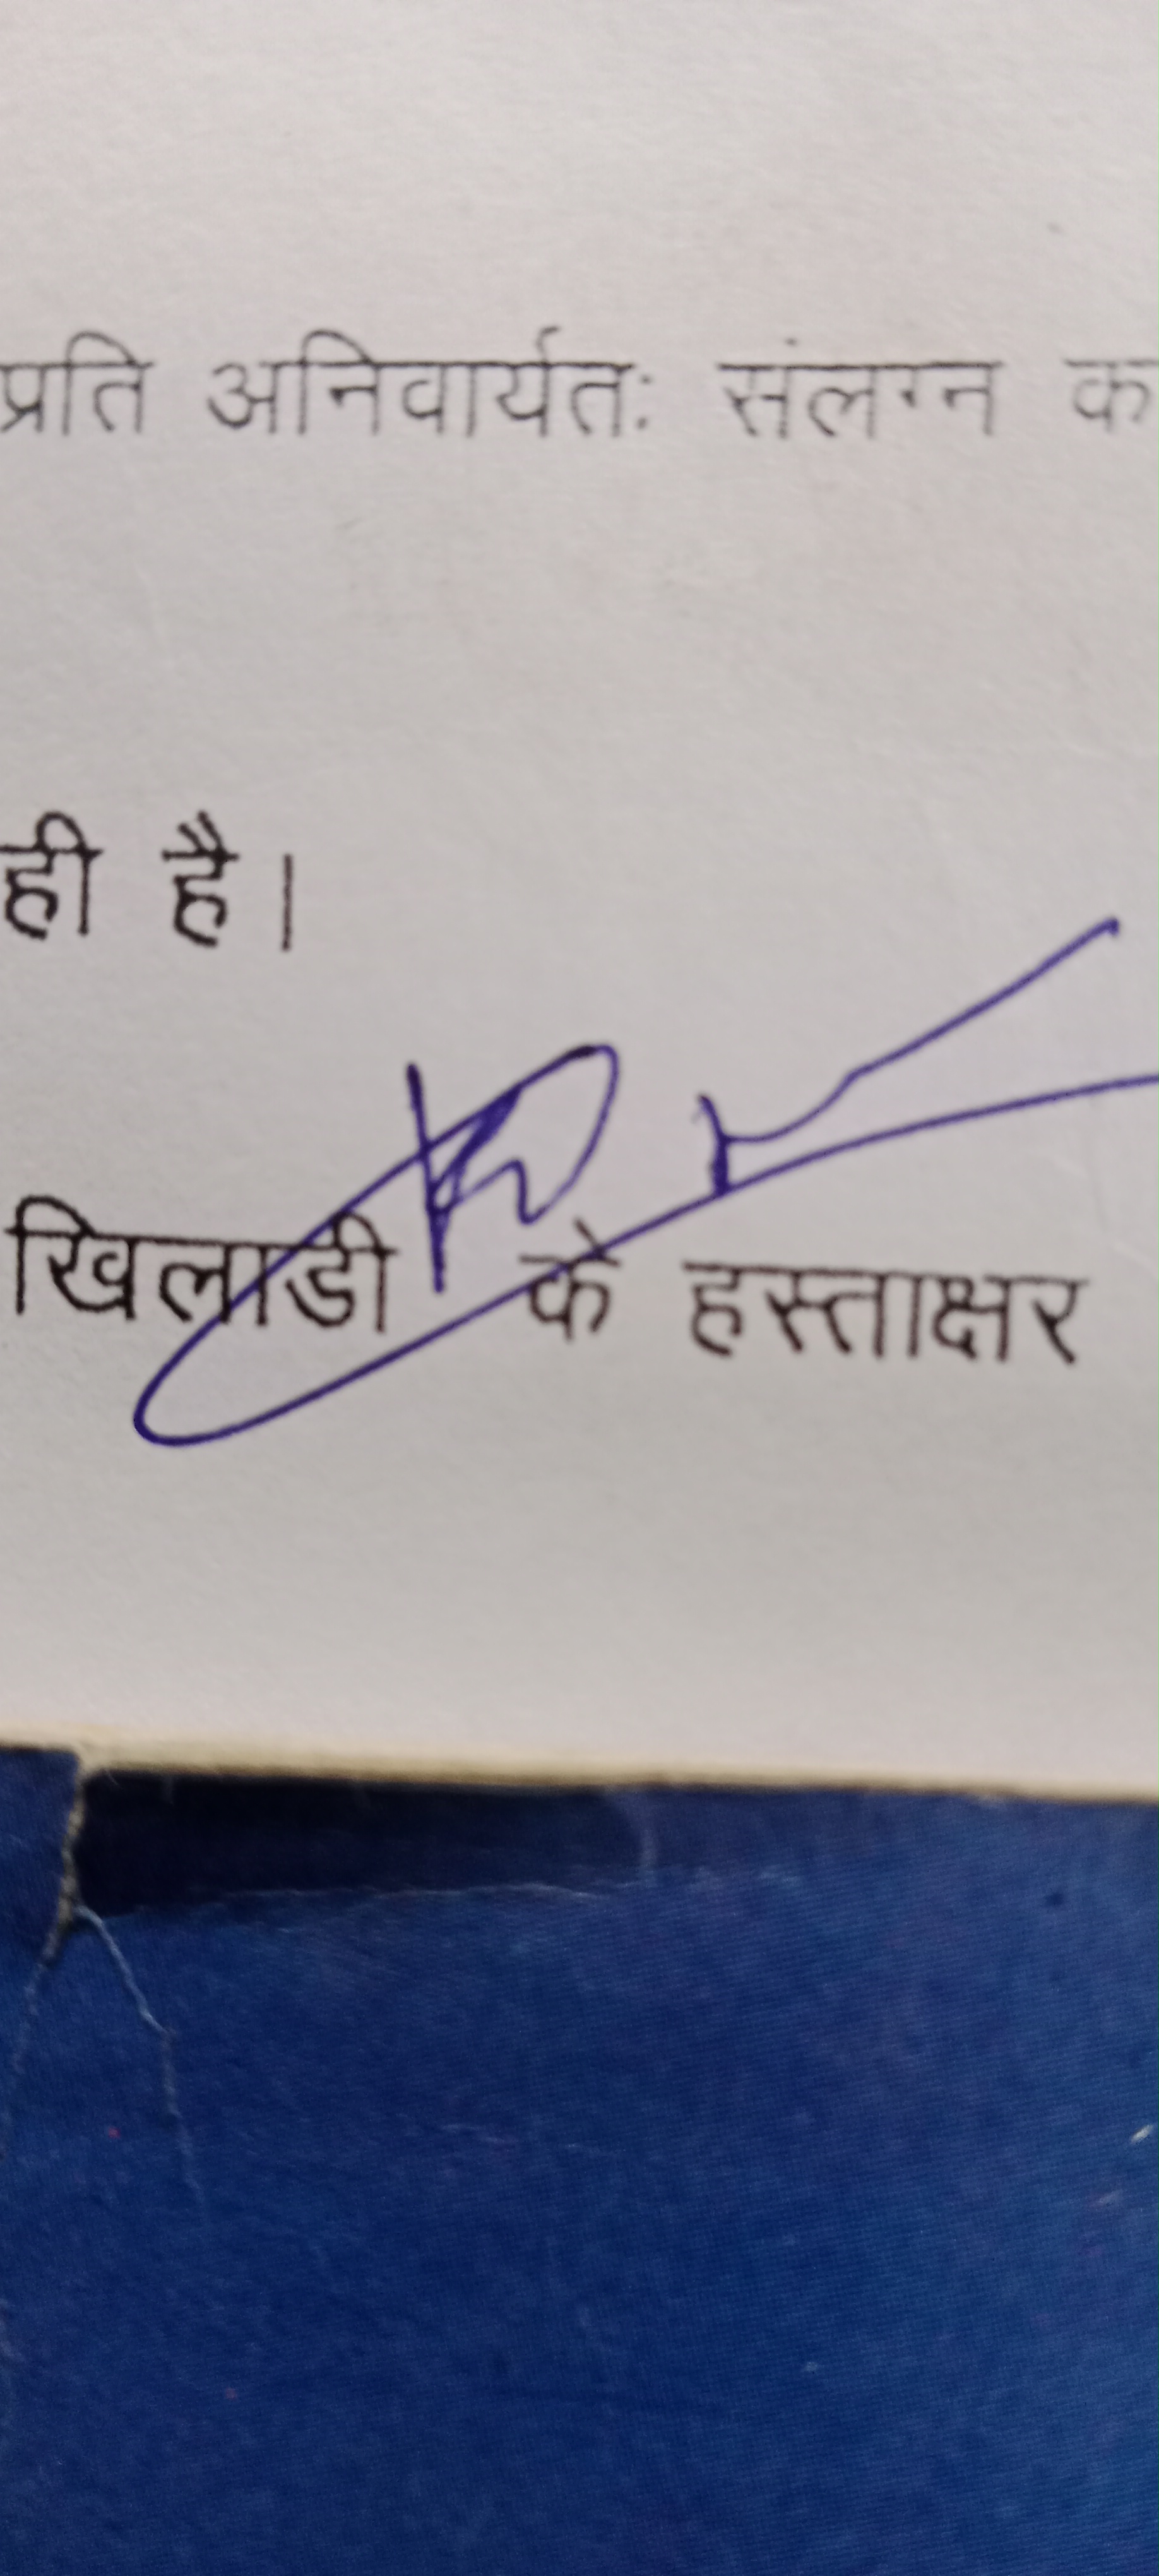 प्रति अनिवार्यतः संलग्न क
ही है।
खिलाडी के हस्ताक्षर